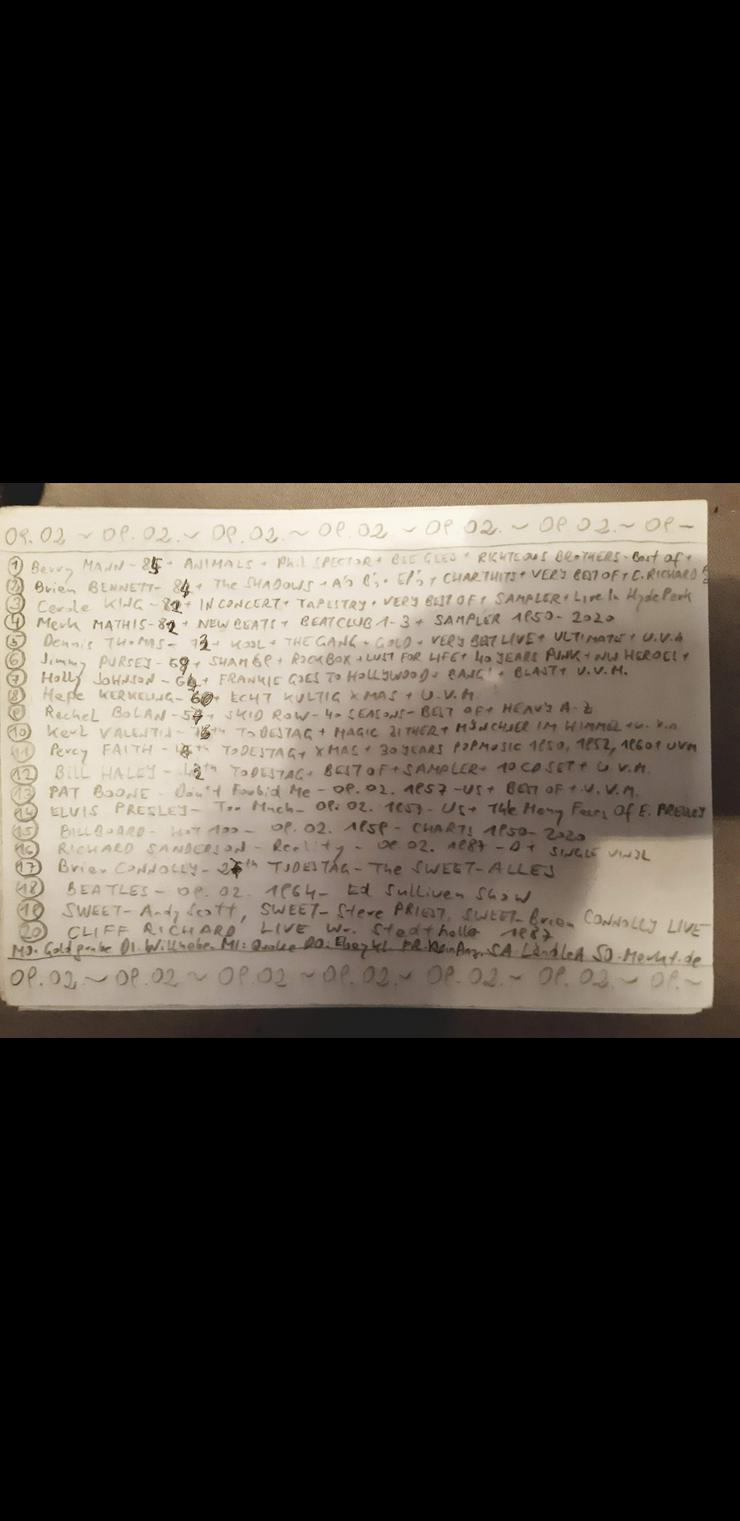 09.02 ~ 09.02. ~ 09.02. ~ 09.02 ~ 09.02. ~ 09.02. ~ 09 -
① Barry MANN - 85 + ANIMALS + Phil SPECTOR + BEE GEES + RIGHTEOUS BROTHERS - Best of +
② Brian BENNETT - 84 + The SHADOWS + A's B's + EP's + CHARTHITS + VERY BEST OF + C. RICHARD
③ Carole KING - 82 + IN CONCERT + TAPESTRY + VERY BEST OF + SAMPLER + Live In Hyde Park
④ Mark MATHIS - 82 + NEWBEATS + BEATCLUB 1-3 + SAMPLER 1950-2020
⑤ Dennis THOMAS - + KOOL + THE GANG + GOLD + VERY BEST LIVE + ULTIMATE + U.V.A
⑥ Jimmy PURSEY - 69 + SHAM 69 + ROCKBOX + LUST FOR LIFE + 40 YEARS PUNK + NW HEROES +
⑦ Holly JOHNSON - 64 + FRANKIE GOES TO HOLLYWOOD + BANG! + BLAST + U.V.M.
⑧ Hape KERKELING - 60 + ECHT KULTIG XMAS + U.V.M.
⑨ Rachel BOLAN - + SKID ROW - 40 SEASONS - BEST OF + HEAVY A-Z
⑩ Karl VALENTIN - TODESTAG + MAGIC ZITHER + MÜNCHNER IM HIMMEL + U.V.A
⑪ Percy FAITH - TODESTAG + XMAS + 30 YEARS POPMUSIC 1950, 1952, 1960 + UVM
⑫ BILL HALEY - 42th TODESTAG + BEST OF + SAMPLER + 10 CD SET + U.V.M.
⑬ PAT BOONE - Don't Forbid Me - 09.02.1957 - US + BEST OF + U.V.M.
⑭ ELVIS PRESLEY - Too Much - 09.02.1957 - US + The Many Faces Of E. PRESLEY
⑮ BILLBOARD - HOT 100 - 09.02.1959 - CHARTS 1950-2020
⑯ RICHARD SANDERSON - Reality - 09.02.1987 - D + SINGLE VINYL
⑰ Brian CONNOLLY - TODESTAG - The SWEET - ALLES
⑱ BEATLES - 09.02.1964 - Ed Sullivan Show
⑲ SWEET - Andy Scott, SWEET - Steve PRIEST, SWEET - Brian CONNOLLY LIVE
⑳ CLIFF RICHARD LIVE Wr. Stadthalle 1987
MO. Goldgrube DI. Willhaben MI: Quoka DO. Ebay kl FR. SA LändleA SO. Markt.de
09.02. ~ 09.02 ~ 09.02 ~ 09.02 ~ 09.02. ~ 09.02. ~ 09. ~